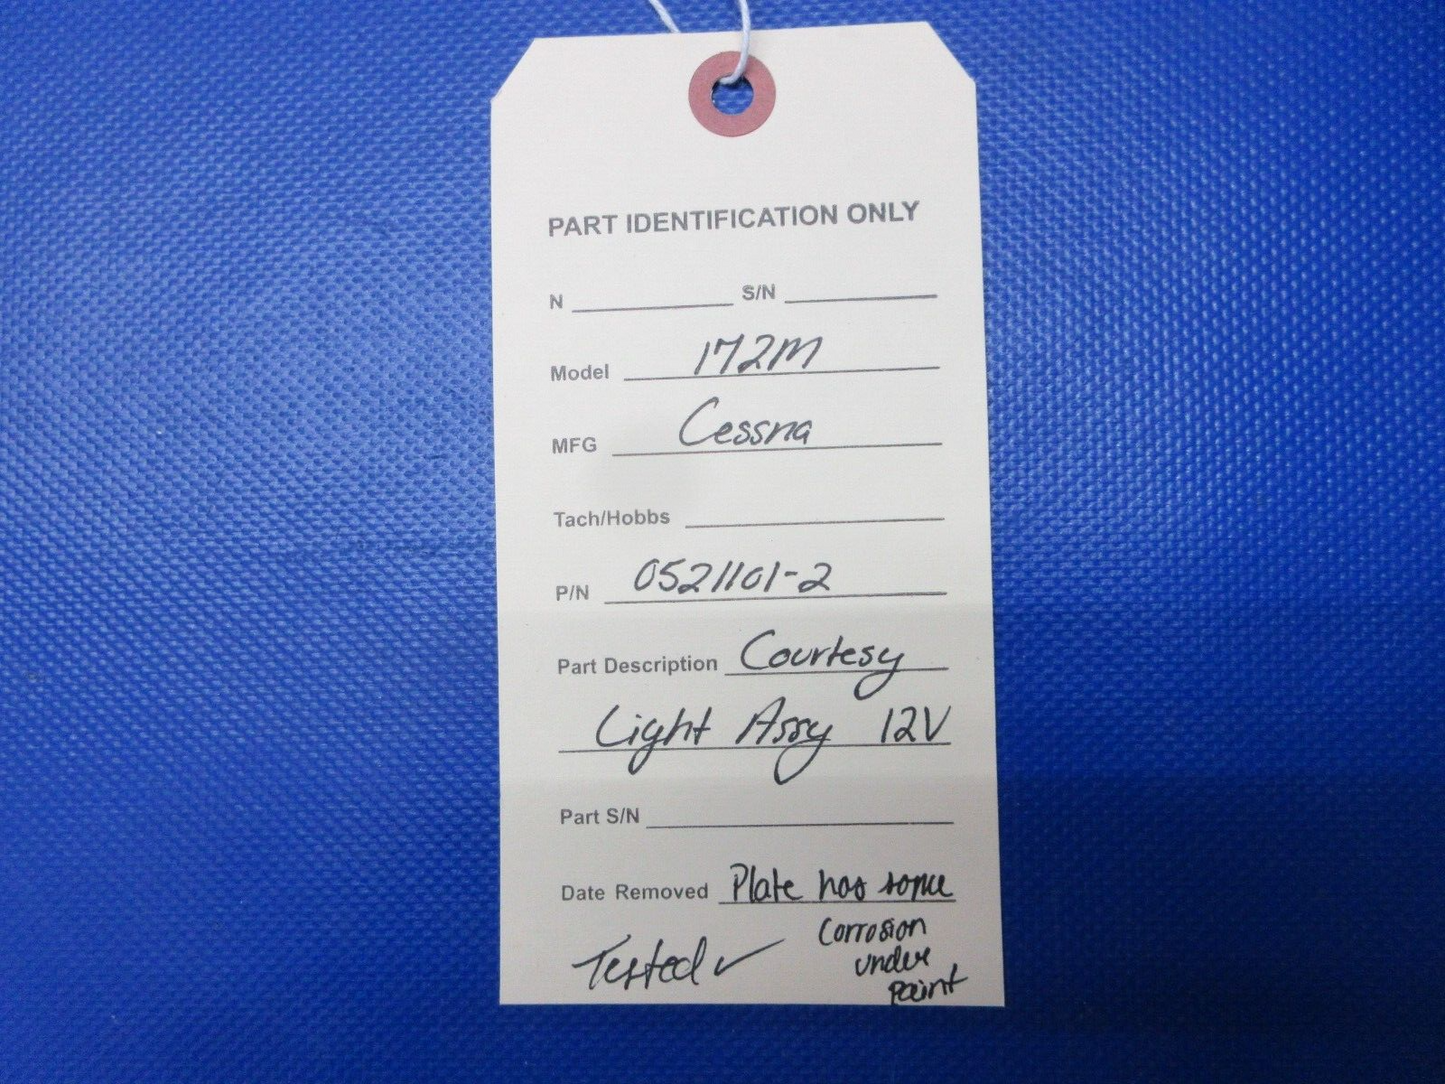 PART IDENTIFICATION ONLY
N S/N
Model 172M
MFG Cessna
Tach/Hobbs
P/N 0521101-2
Part Description Courtesy
Light Assy 12V
Part S/N
Date Removed Plate has some
Tested ✓ Corrosion
under
paint